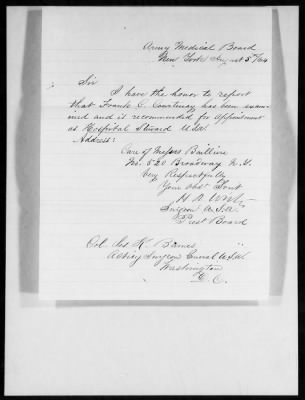 Army Medical Board
New York August 5th/64
Sir
I have the honor to report
that Frank C. Courtenay has been exam-
ined and is recommended for Appointment
as Hospital Steward U.S.A.
Address:
Care of Messrs
No. 520 Broadway N.Y.
Very Respectfully
Your Obdt Servt
Surgeon U.S.A.
Prest Board
Col. Jos K. Barnes
Acting Surgeon Genral U.S.A.
Washington
D. C.